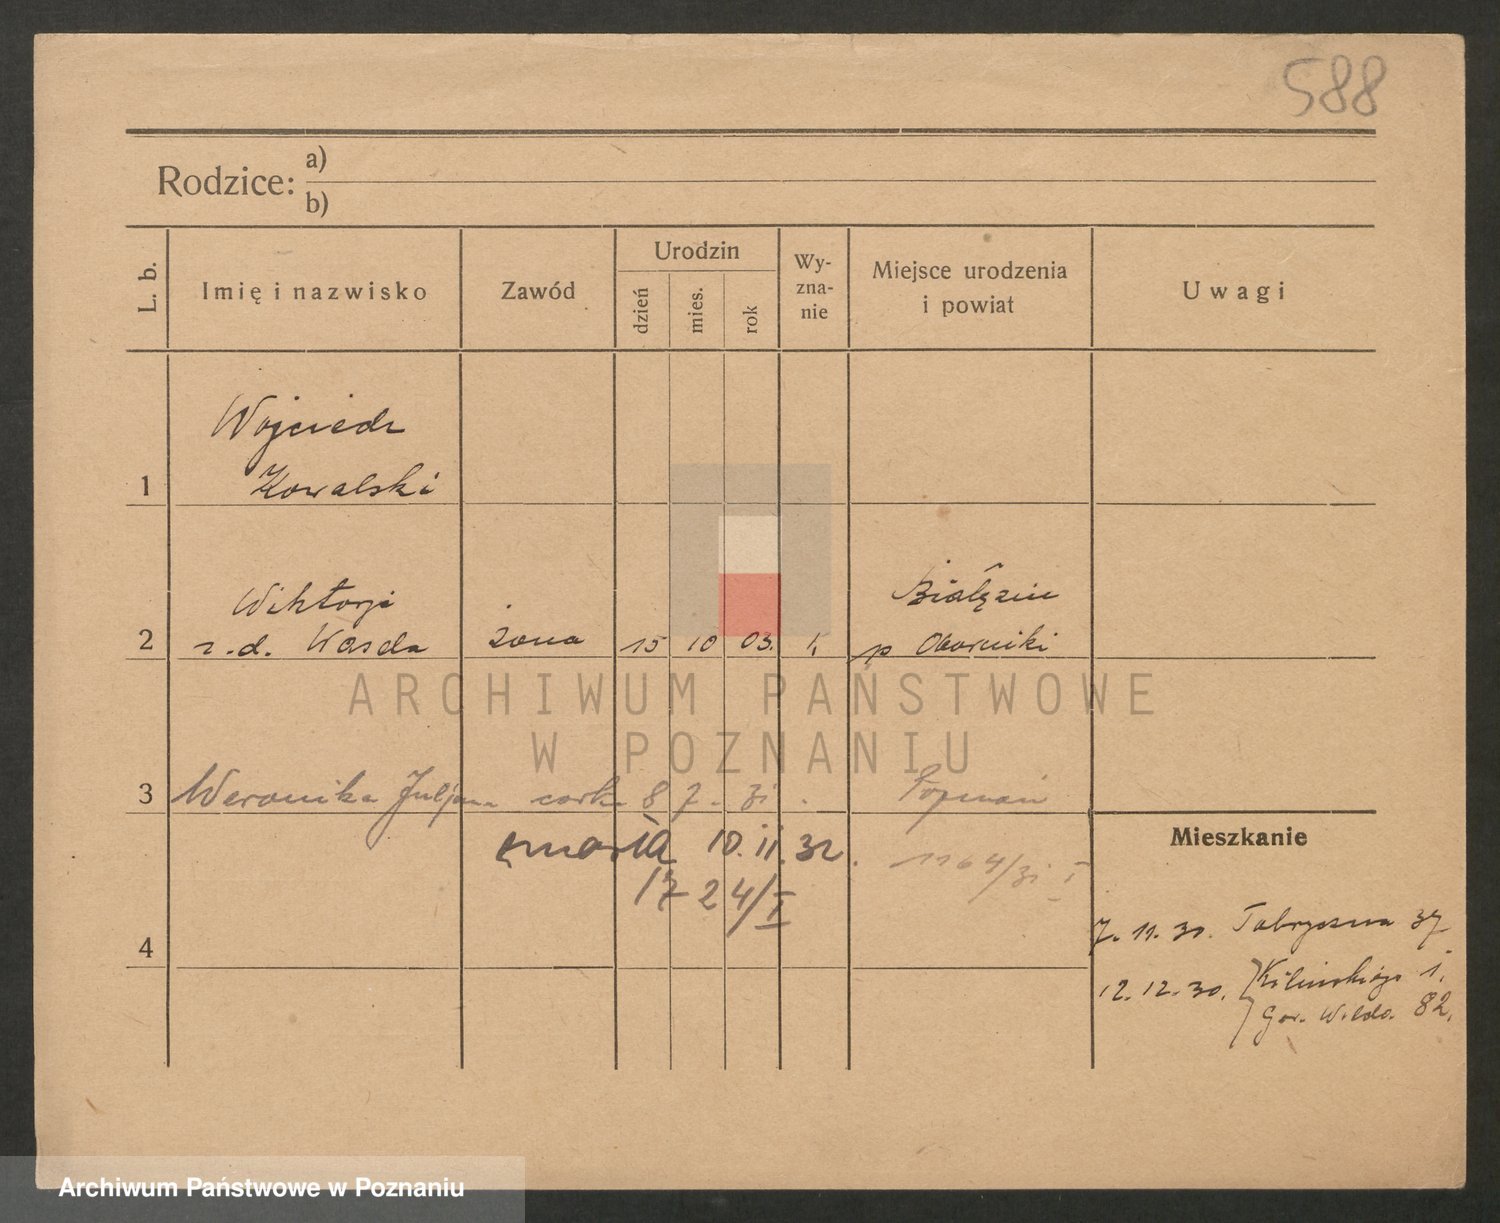 588
Rodzice: a)
b)
L. b.
Imię i nazwisko
Zawód
Urodzin
dzień
mies.
rok
Wy-
zna-
nie
Miejsce urodzenia
i powiat
Uwagi
1
Wojciech
Kowalski
2
Wiktorja
z. d. Wasela
żona
15 10 03.
Białężin
p Oborniki
ARCHIWUM PAŃSTWOWE
W POZNANIU
3
Weronika Juljana córka 8 7. 31.
Poznań
zmarła 10. 11. 32.
1724/I
1164/31 I
4
Mieszkanie
7. 11. 30. Fabryczna 37
12. 12. 30. Kilińskiego 1.
Gór. Wilda 82.
Archiwum Państwowe w Poznaniu